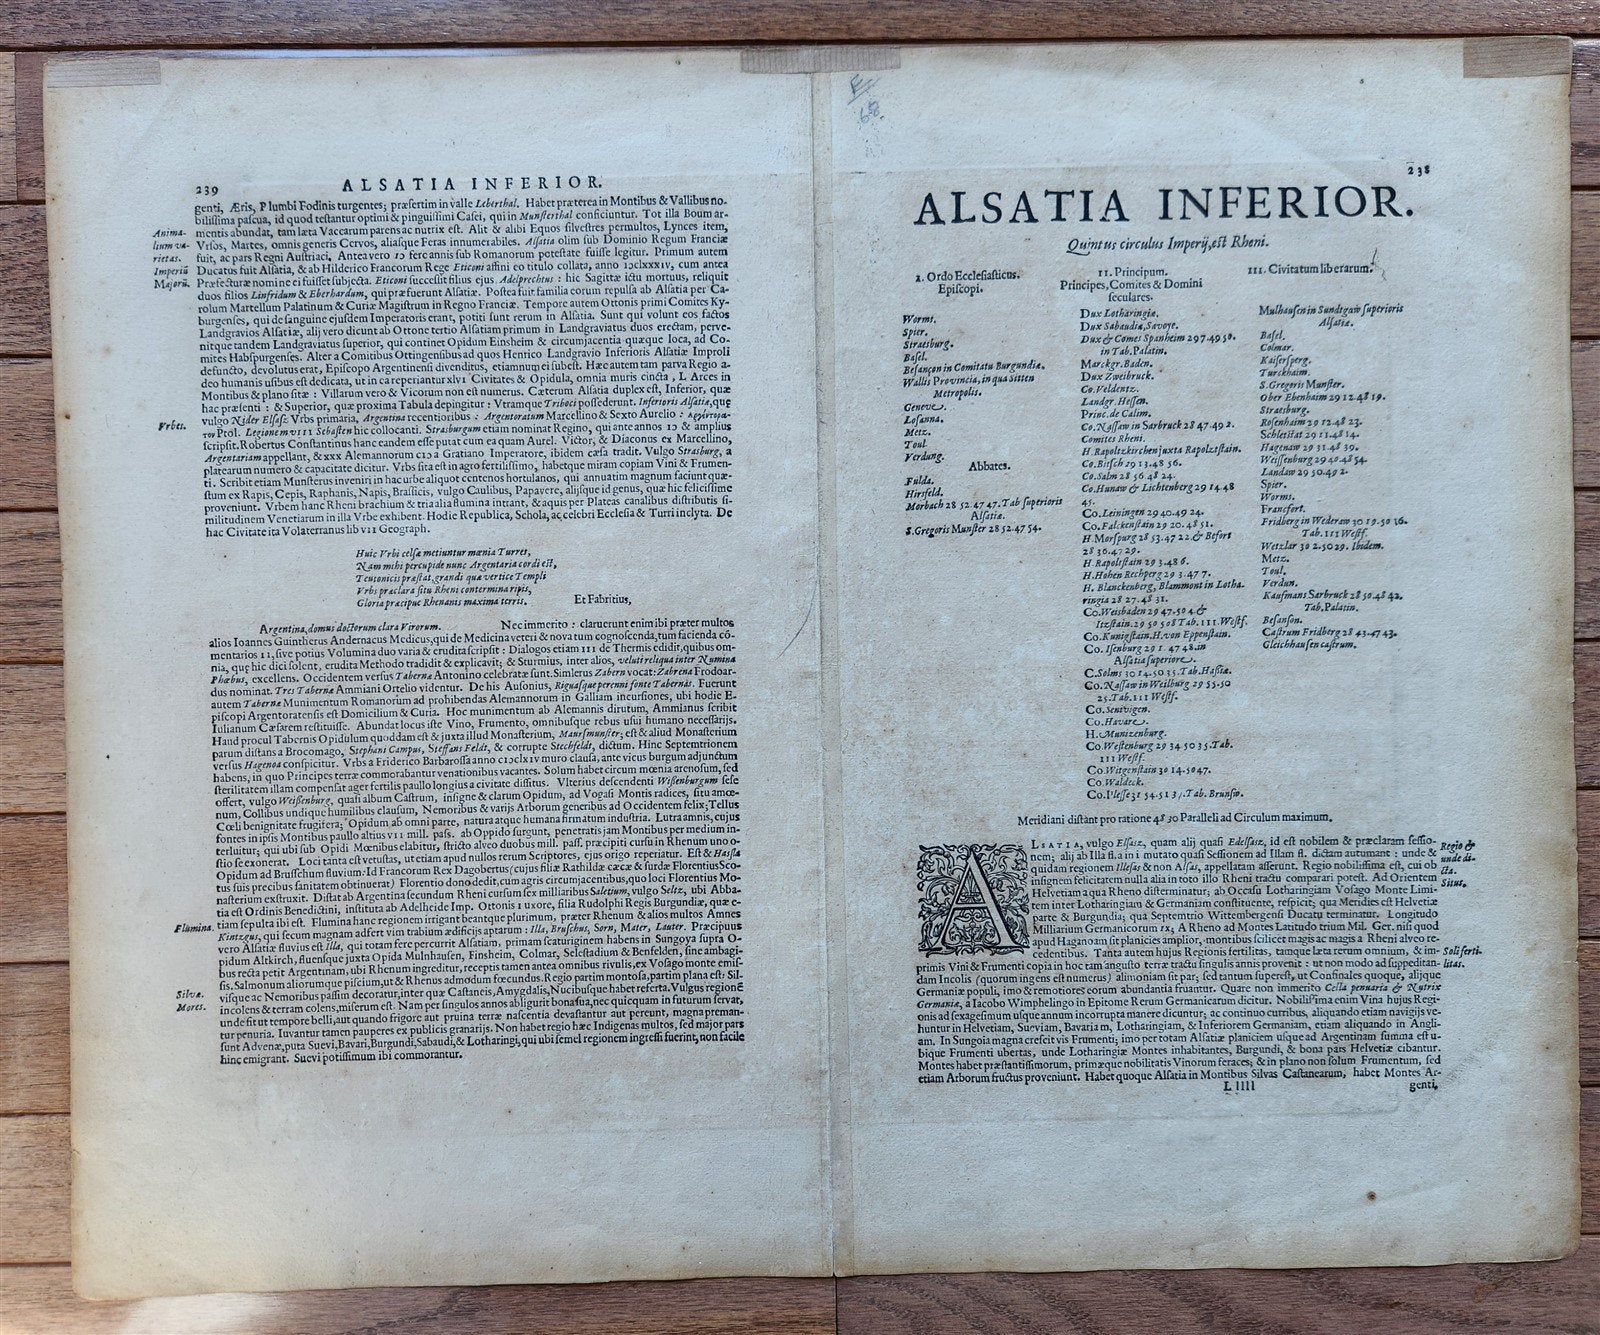 239 ALSATIA INFERIOR.
genti, Æris, Plumbi Fodinis turgentes; præsertim in valle Leberthal. Habet præterea in Montibus & Vallibus no-
bilissima pascua, id quod testantur optimi & pinguissimi Casei, qui in Munsterthal conficiuntur. Tot illa Boum ar-
mentis abundat, tam læta Vaccarum parens ac nutrix est. Alit & alibi Equos silvestres permultos, Lynces item,
Anima-
lium va-
rietas.
Vrsos, Martes, omnis generis Cervos, aliasque Feras innumerabiles. Alsatia olim sub Dominio Regum Franciæ
fuit, ac pars Regni Austriaci. Antea vero 10 fere annis sub Romanorum potestate fuisse legitur. Primum autem
Imperiū
Majorū.
Ducatus fuit Alsatia, & ab Hilderico Francorum Rege Eticoni affini eo titulo collata, anno IↃclxxxiv, cum antea
Præfecturæ nomine ei fuisset subjecta. Eticoni successit filius ejus Adelprechtus: hic Sagittæ ictu mortuus, reliquit
duos filios Linfridum & Eberhardum, qui præfuerunt Alsatiæ. Postea fuit familia eorum repulsa ab Alsatia per Ca-
rolum Martellum Palatinum & Curiæ Magistrum in Regno Franciæ. Tempore autem Ottonis primi Comites Ky-
burgenses, qui de sanguine ejusdem Imperatoris erant, potiti sunt rerum in Alsatia. Sunt qui volunt eos factos
Landgravios Alsatiæ, alij vero dicunt ab Ottone tertio Alsatiam primum in Landgraviatus duos erectam, perve-
nitque tandem Landgraviatus superior, qui continet Opidum Einsheim & circumjacentia quæque loca, ad Co-
mites Habspurgenses. Alter a Comitibus Ottingensibus ad quos Henrico Landgravio Inferioris Alsatiæ Improli
defuncto, devolutus erat, Episcopo Argentinensi divenditus, etiamnum ei subest. Hæc autem tam parva Regio a-
deo humanis usibus est dedicata, ut in ea reperiantur xlvi Civitates & Opidula, omnia muris cincta, L Arces in
Montibus & plano sitæ: Villarum vero & Vicorum non est numerus. Cæterum Alsatia duplex est, Inferior, quæ
hac præsenti: & Superior, quæ proxima Tabula depingitur: Vtramque Triboci possederunt. Inferioris Alsatiæ, quę
Vrbes.
vulgo Nider Elsasz Vrbs primaria, Argentina recentioribus: Argentoratum Marcellino & Sexto Aurelio:
Ptol. Legionem VIII Sebasten hic collocanti. Strasburgum etiam nominat Regino, qui ante annos 10 & amplius
scripsit. Robertus Constantinus hanc eandem esse putat cum ea quam Aurel. Victor, & Diaconus ex Marcellino,
Argentariam appellant, & xxx Alemannorum cIↃa Gratiano Imperatore, ibidem cæsa tradit. Vulgo Strasburg, a
platearum numero & capacitate dicitur. Vrbs sita est in agro fertilissimo, habetque miram copiam Vini & Frumen-
ti. Scribit etiam Munsterus inveniri in hac urbe aliquot centenos hortulanos, qui annuatim magnum faciunt quæ-
stum ex Rapis, Cepis, Raphanis, Napis, Brassicis, vulgo Caulibus, Papavere, alijsque id genus, quæ hic felicissime
proveniunt. Vrbem hanc Rheni brachium & tria alia flumina intrant, & aquis per Plateas canalibus distributis si-
militudinem Venetiarum in illa Vrbe exhibent. Hodie Republica, Schola, ac celebri Ecclesia & Turri inclyta. De
hac Civitate ita Volaterranus lib VII Geograph.
Huic Vrbi celsæ metiuntur mœnia Turres,
Nam mihi percupide nunc Argentaria cordi est,
Teutonicis præstat, grandi quæ vertice Templi
Vrbs præclara situ Rheni contermina ripis,
Gloria præcipue Rhenanis maxima terris.
Et Fabritius,
Argentina, domus doctorum clara Virorum.
Nec immerito: claruerunt enim ibi præter multos
alios Ioannes Guintherus Andernacus Medicus, qui de Medicina veteri & nova tum cognoscenda, tum facienda cō-
mentarios 11, sive potius Volumina duo varia & erudita scripsit: Dialogos etiam III de Thermis edidit, quibus om-
nia, quę hic dici solent, erudita Methodo tradidit & explicavit; & Sturmius, inter alios, veluti reliqua inter Numina
Phœbus, excellens. Occidentem versus Tabernæ Antonino celebratæ sunt. Simlerus Zabern vocat: Zabrena Frodoar-
dus nominat. Tres Tabernæ Ammiani Ortelio videntur. De his Ausonius, Riguasque perenni fonte Tabernas. Fuerunt
autem Tabernæ Munimentum Romanorum ad prohibendas Alemannorum in Galliam incursiones, ubi hodie E-
piscopi Argentoratensis est Domicilium & Curia. Hoc munimentum ab Alemannis dirutum, Ammianus scribit
Iulianum Cæsarem restituisse. Abundat locus iste Vino, Frumento, omnibusque rebus usui humano necessarijs.
Haud procul Tabernis Opidulum quoddam est & juxta illud Monasterium, Maursmunster; est & aliud Monasterium
parum distans a Brocomago, Stephani Campus, Steffans Feldt, & corrupte Stechfeldt, dictum. Hinc Septemtrionem
versus Hagenoa conspicitur. Vrbs a Friderico Barbarossa anno cIↃclxIV muro clausa, ante vicus burgum adjunctum
habens, in quo Principes terræ commorabantur venationibus vacantes. Solum habet circum mœnia arenosum, sed
sterilitatem illam compensat ager fertilis paullo longius a civitate dissitus. Vlterius descendenti Wißenburgum sese
offert, vulgo Weißenburg, quasi album Castrum, insigne & clarum Opidum, ad Vogasi Montis radices, situ amœ-
num, Collibus undique humilibus clausum, Nemoribus & varijs Arborum generibus ad Occidentem felix; Tellus
Cœli benignitate frugifera; Opidum ab omni parte, natura atque humana firmatum industria. Lutra amnis, cujus
fontes in ipsis Montibus paullo altius VII mill. pass. ab Oppido surgunt, penetratis jam Montibus per medium in-
terluitur; qui ubi sub Opidi Mœnibus elabitur, stricto alveo duobus mill. pass. præcipiti cursu in Rhenum uno o-
stio se exonerat. Loci tanta est vetustas, ut etiam apud nullos rerum Scriptores, ejus origo reperiatur. Est & Hasla
Opidum ad Bruschum fluvium. Id Francorum Rex Dagobertus (cujus filiæ Rathildæ cæcæ & surdæ Florentius Sco-
tus suis precibus sanitatem obtinuerat) Florentio dono dedit, cum agris circumjacentibus, quo loci Florentius Mo-
nasterium exstruxit. Distat ab Argentina secundum Rheni cursum sex milliaribus Saletium, vulgo Seltz, ubi Abba-
tia est Ordinis Benedictini, instituta ab Adelheide Imp. Ottonis I uxore, filia Rudolphi Regis Burgundiæ, quæ e-
Flumina.
tiam sepulta ibi est. Flumina hanc regionem irrigant beantque plurimum, præter Rhenum & alios multos Amnes
Kintzgus, qui secum magnam adfert vim trabium ædificijs aptarum: Illa, Bruschus, Sorn, Mater, Lauter. Præcipuus
vero Alsatiæ fluvius est Illa, qui totam fere percurrit Alsatiam, primam scaturiginem habens in Sungoya supra O-
pidum Altkirch, fluensque juxta Opida Mulnhausen, Einsheim, Colmar, Selestadium & Benfelden, sine ambagi-
bus recta petit Argentinam, ubi Rhenum ingreditur, receptis tamen antea omnibus rivulis, ex Vosago monte emis-
sis. Salmonum aliorumque piscium, ut & Rhenus admodum fœcundus. Regio partim montosa, partim plana est: Sil-
Silvæ.
Mores.
visque ac Nemoribus passim decoratur, inter quæ Castaneis, Amygdalis, Nucibusque habet referta. Vulgus regionē
incolens & terram colens, miserum est. Nam per singulos annos abligurit bona sua, nec quicquam in futurum servat,
unde fit ut tempore belli, aut quando frigore aut pruina terræ nascentia devastantur aut pereunt, magna preman-
tur penuria. Iuvantur tamen pauperes ex publicis granarijs. Non habet regio hæc Indigenas multos, sed major pars
sunt Advenæ, puta Suevi, Bavari, Burgundi, Sabaudi, & Lotharingi, qui ubi semel regionem ingressi fuerint, non facile
hinc emigrant. Suevi potissimum ibi commorantur.
68.
238
ALSATIA INFERIOR.
Quintus circulus Imperij, est Rheni.
I. Ordo Ecclesiasticus.
Episcopi.
Worms.
Spier.
Strasburg.
Basel.
Besançon in Comitatu Burgundiæ.
Wallis Provincia, in qua Sitten
Metropolis.
Geneve.
Losanna.
Metz.
Toul.
Verdung.
Abbates.
Fulda.
Hirsfeld.
Morbach 28 52. 47 47. Tab superioris
Alsatiæ.
S. Gregoris Munster 28 52. 47 54.
II. Principum.
Principes, Comites & Domini
seculares.
Dux Lotharingiæ.
Dux Sabaudiæ, Savoye.
Dux & Comes Spanheim 29 7. 49 50.
in Tab. Palatin.
Marckgr. Baden.
Dux Zweibruck.
Co. Veldentz.
Landgr. Hessen.
Princ. de Calim.
Co. Nassaw in Sarbruck 28 47. 49 2.
Comites Rheni.
H. Rapoltzkirchen juxta Rapoltzstain.
Co. Bitsch 29 13. 48 56.
Co. Salm 28 56. 48 24.
Co. Hunaw & Lichtenberg 29 14. 48
45.
Co. Leiningen 29 40. 49 24.
Co. Falckenstain 29 20. 48 51.
H. Morspurg 28 53. 47 22. & Befort
28 36. 47 29.
H. Rapoltstain 29 3. 48 6.
H. Hohen Rechperg 29 3. 47 7.
H. Blanckenberg, Blammont in Lotha-
ringia 28 27. 48 31.
Co. Weisbaden 29 47. 50 4. &
Itzstain. 29 50 50 8 Tab. III Westf.
Co. Kunigstain. H. von Eppenstain.
Co. Isenburg 29 1. 47 48. in
Alsatia superiore.
C. Solms 30 14. 50 35. Tab. Haßiæ.
Co. Nassaw in Weilburg 29 55. 50
25. Tab. III Westf.
Co. Senivigen.
Co. Havare.
H. Muntzenburg.
Co. Westenburg 29 34 50 35. Tab.
III Westf.
Co. Witgenstain 30 14. 50 47.
Co. Waldeck.
Co. Plesse 31 54. 51 3. Tab. Brunsw.
III. Civitatum liberarum.
Mulhausen in Sundtgaw superioris
Alsatiæ.
Basel.
Colmar.
Kaisersperg.
Turckhaim.
S. Gregoris Munster.
Ober Ebenhaim 29 12. 48 19.
Strasburg.
Rosenhaim 29 12. 48 23.
Schletstat 29 11. 48 14.
Hagenaw 29 31. 48 39.
Weissenburg 29 40. 48 54.
Landaw 29 50. 49 2.
Spier.
Worms.
Francfort.
Fridberg in Wederaw 30 19. 50 16.
Tab. III Westf.
Wetzlar 30 2. 50 29. Ibidem.
Metz.
Toul.
Verdun.
Kaufmans Sarbruck 28 50. 48 42.
Tab. Palatin.
Besanson.
Castrum Fridberg 28 43. 47 43.
Gleichhausen castrum.
Meridiani distant pro ratione 48 30 Paralleli ad Circulum maximum.
Regio &
unde di-
cta.
Situs.
ALSATIA, vulgo Elsasz, quam alij quasi Edelsasz, id est nobilem & præclaram sessio-
nem; alij ab Illa fl. a in i mutato quasi Sessionem ad Illam fl. dictam autumant: unde &
quidam regionem Illesas & non Alsas, appellatam asserunt. Regio nobilissima est, cui ob
insignem felicitatem nulla alia in toto illo Rheni tractu comparari potest. Ad Orientem
Helvetiam a qua Rheno disterminatur; ab Occasu Lotharingiam Vosago Monte Limi-
tem inter Lotharingiam & Germaniam constituente, respicit; qua Meridies est Helvetiæ
parte & Burgundia; qua Septemtrio Wittembergensi Ducatu terminatur. Longitudo
Milliarium Germanicorum IX; A Rheno ad Montes Latitudo trium Mil. Ger. nisi quod
apud Haganoam sit planicies amplior, montibus scilicet magis ac magis a Rheni alveo re-
Soli ferti-
litas.
cedentibus. Tanta autem hujus Regionis fertilitas, tamque læta rerum omnium, & im-
primis Vini & Frumenti copia in hoc tam angusto terræ tractu singulis annis provenit: ut non modo ad suppeditan-
dam Incolis (quorum ingens est numerus) alimoniam sit par; sed tantum superest, ut Confinales quoque, alijque
Germaniæ populi, imo & remotiores eorum abundantia fruantur. Quare non immerito Cella penuaria & Nutrix
Germaniæ, a Iacobo Wimphelingo in Epitome Rerum Germanicarum dicitur. Nobilissima enim Vina hujus Regi-
onis ad sexagesimum usque annum incorrupta manere dicuntur; ac continuo curribus, aliquando etiam navigijs ve-
huntur in Helvetiam, Sueviam, Bavariam, Lotharingiam, & Inferiorem Germaniam, etiam aliquando in Angli-
am. In Sungoia magna crescit vis Frumenti; imo per totam Alsatiæ planiciem usque ad Argentinam summa est u-
bique Frumenti ubertas, unde Lotharingiæ Montes inhabitantes, Burgundi, & bona pars Helvetiæ cibantur.
Montes habet præstantissimorum, primæque nobilitatis Vinorum feraces; & in plano non solum Frumentum, sed
etiam Arborum fructus proveniunt. Habet quoque Alsatia in Montibus Silvas Castanearum, habet Montes Ar-
Lllll genti,